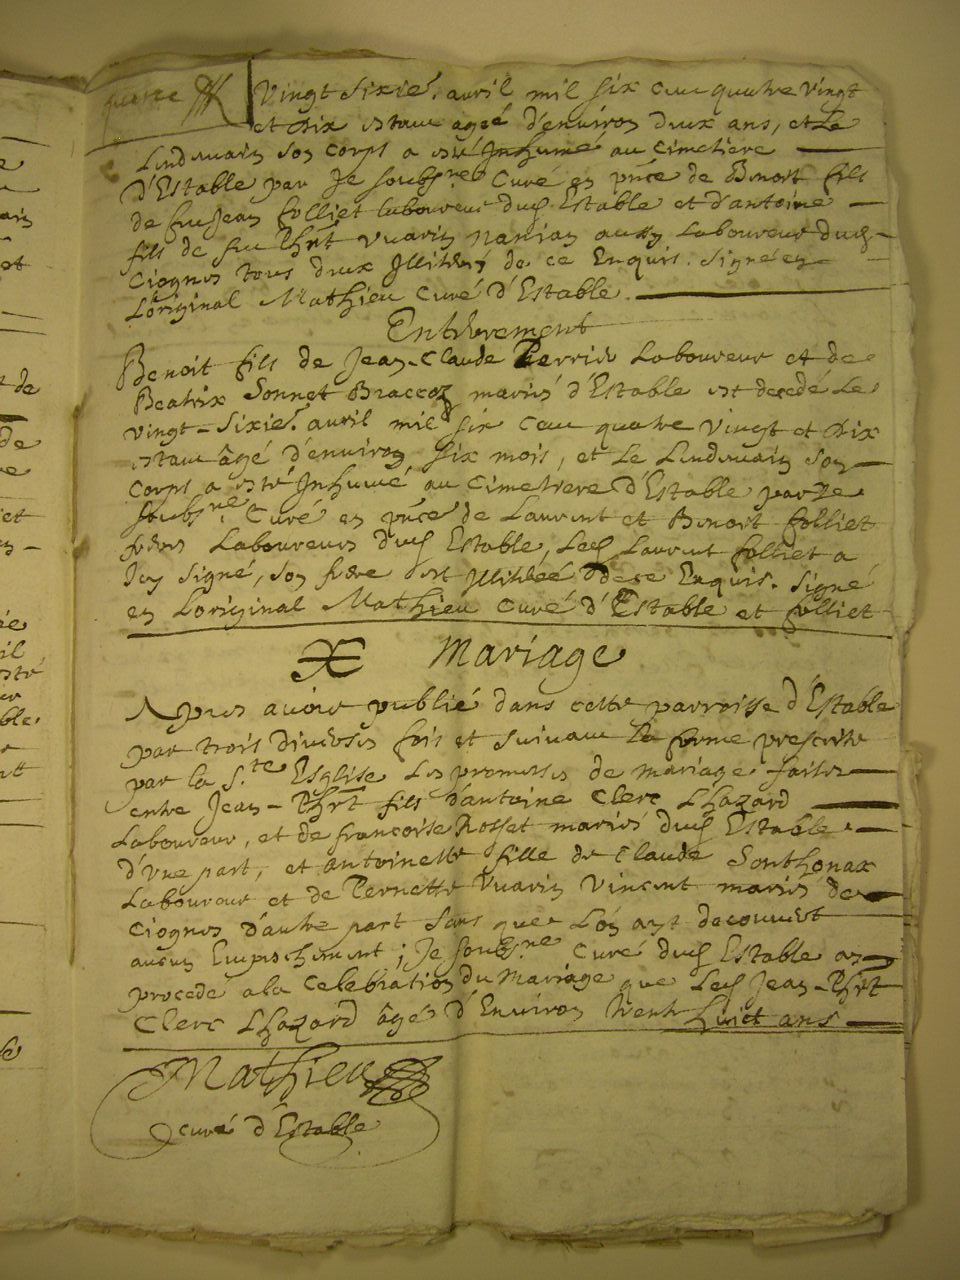 vingt sixie. avril mil six cens quatre vingt
et dix estant ageé d'environ deux ans, et Le
Lendemain son corps a esté Inhumé au Cimetiere
D'Estable par Je soubs.né Curé en pnce de Benoit fils
de feu Jean folliet laboureur dud. Estable et d'antoine
fils de feu Phrt vuarin nanian aussy Laboureur dud.
Ciognes tous deux Illiterés de ce Enquis. Signé en
Loriginal Mathieu Curé d'Estable.
Enterrement
Benoit fils de Jean-Claude Perrier Laboureur et de
Beatrix Sonnet Braccoz mariés d'Estable est decedé Le
vingt-sixie. avril mil six cens quatre vingt et dix
estant âgé d'environ six mois, et Le Lendemain son
corps a esté Inhumé au Cimetiere d'Estable par Je
soubs.né Curé en pnce de Laurent et Benoit folliet
freres Laboureurs dud. Estable, Led. Laurent folliet a
Icy signé, son frere est Illiteré de ce Enquis. signé
en Loriginal Mathieu Curé d'Estable et folliet
Mariage
Apres avoir publié dans cette parroisse d'Estable
par trois diverses fois et suivant la forme prescrite
par la S.te Esglise Les promesses de mariage faites
entre Jean-Phrt fils d'antoine Clerc Lhazard
Laboureur, et de francoise Rosset mariés dud. Estable
d'une part, et antoinette fille de Claude Sonthonax
Laboureur et de Pernette Vuarin Vincent mariés de
Ciognes d'autre part sans que L'on ayt decouvert
aucun Empechement; Je soubs.né Curé dud. Estable ay
procedé a la Celebration du Mariage que Led. Jean-Phrt
Clerc Lhazard âgé d'Environ trente huict ans
Mathieu
curé d'Estable